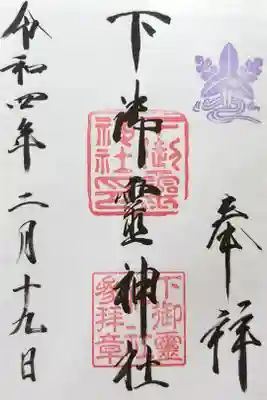 奉祥
下御靈神社
下御靈神社印
下御靈神社参拝章
令和四年二月十九日